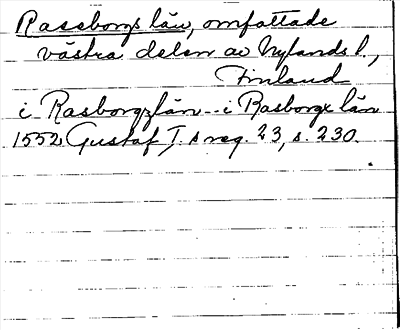 Raseborgs län, omfattade
västra delen av Nylands l.,
Finland
i Rasborgz län -- i Rasborgx län
1552 Gustaf I.s reg. 23, s. 230.